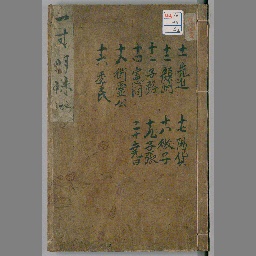 十一先進
十二顔渕
十三子路
十四憲問
十五衛霊公
十六季氏
十七陽貨
十八微子
十九子張
二十堯曰
一寸明珠